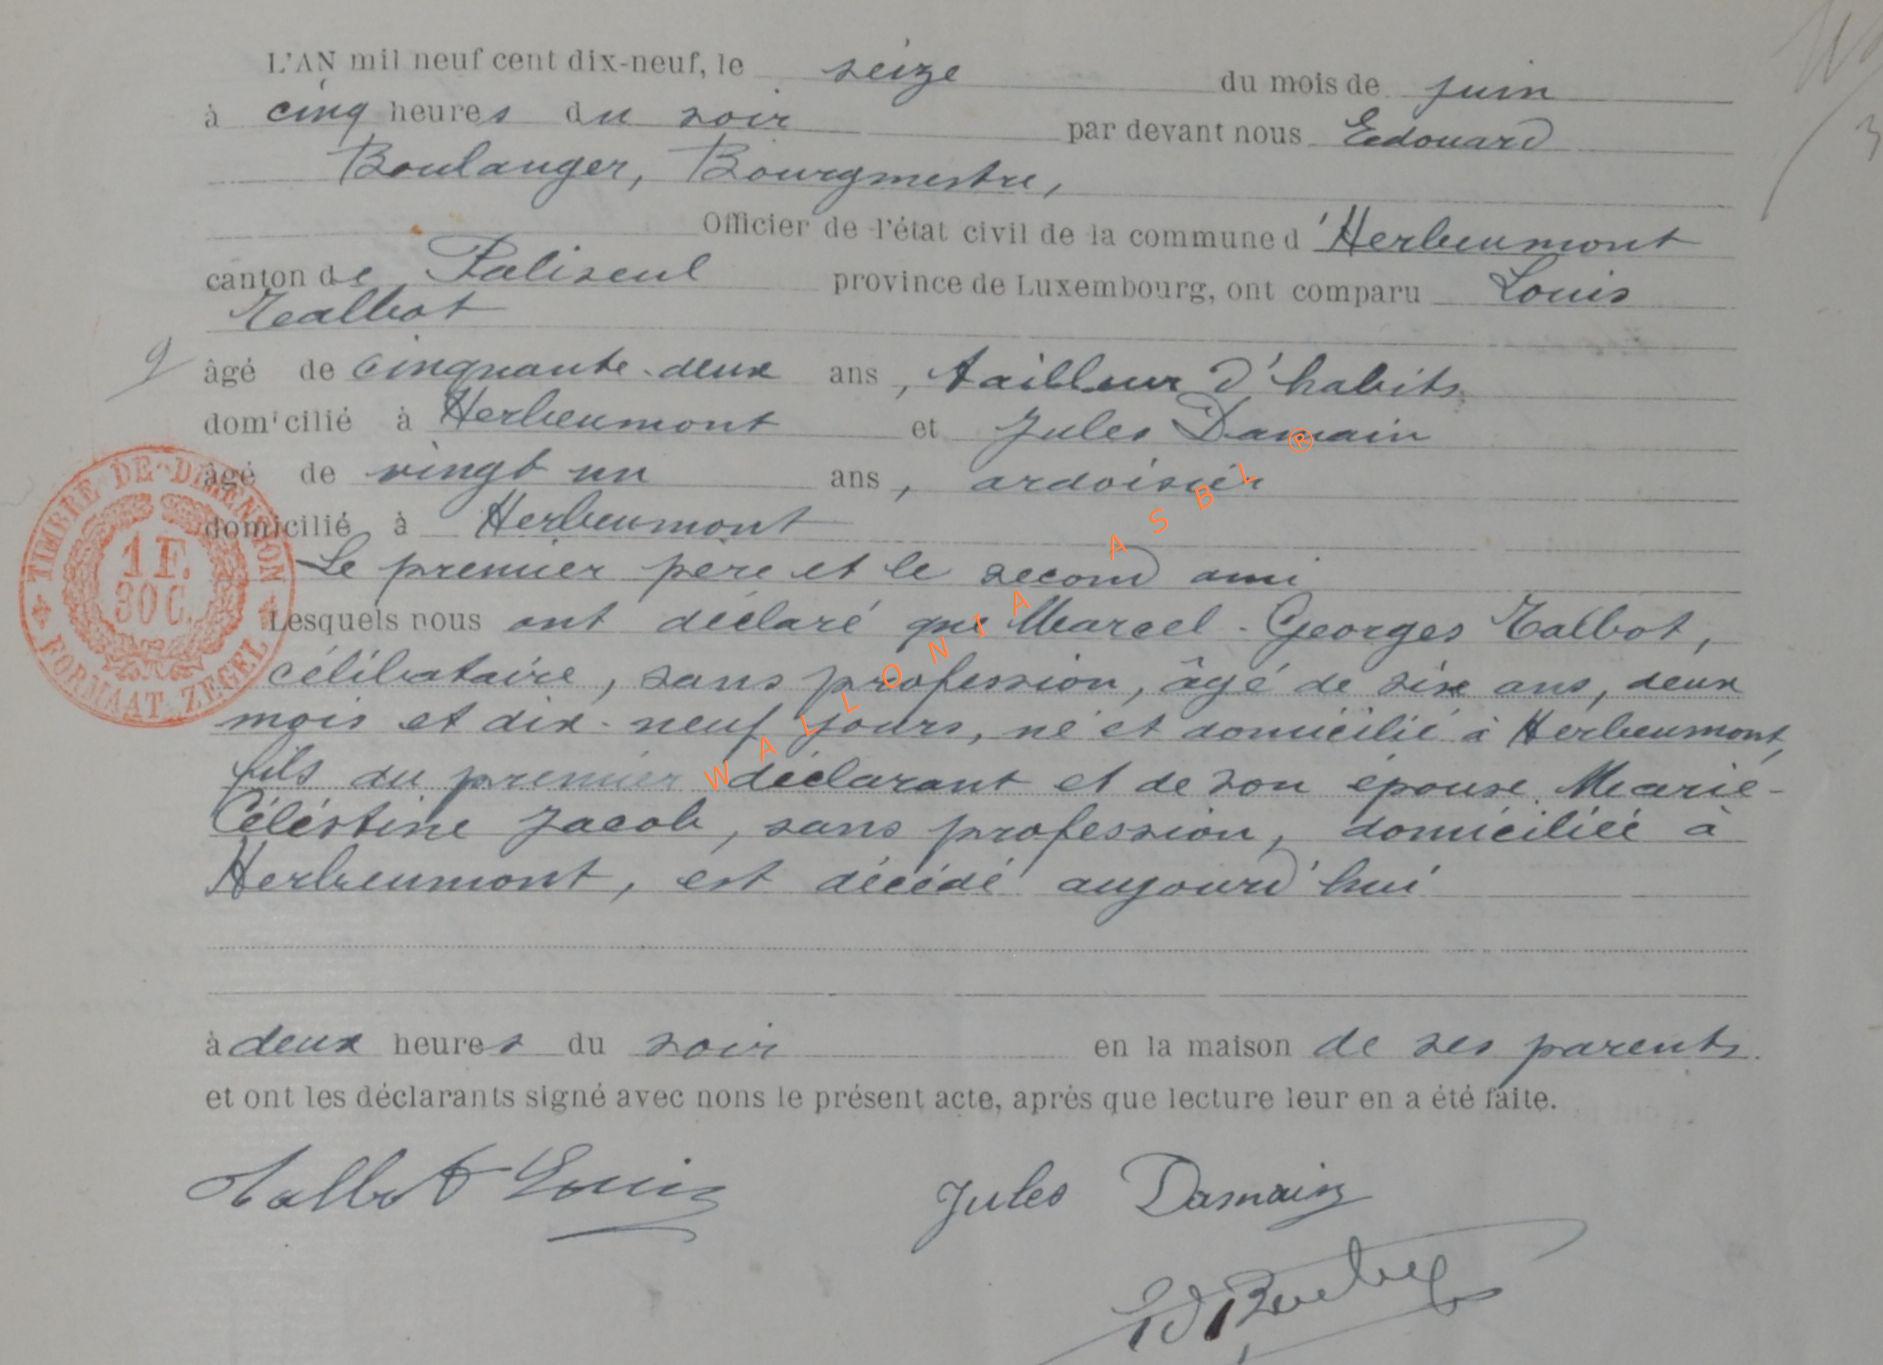 L'AN mil neuf cent dix-neuf, le seize du mois de juin
à cinq heures du soir par devant nous Edouard
Boulanger, Bourgmestre,
Officier de l'état civil de la commune d'Herbeumont
canton de Paliseul province de Luxembourg, ont comparu Louis
Talbot
9 âgé de cinquante-deux ans, tailleur d'habits
domicilié à Herbeumont et Jules Damain
âgé de vingt un ans, ardoisier
domicilié à Herbeumont
Le premier père et le second ami
Lesquels nous ont déclaré que Marcel-Georges Talbot,
célibataire, sans profession, âgé de six ans, deux
mois et dix-neuf jours, né et domicilié à Herbeumont,
fils du premier déclarant et de son épouse Marie-
Céléstine Jacob, sans profession, domiciliée à
Herbeumont, est décédé aujourd'hui
à deux heures du soir en la maison de ses parents.
et ont les déclarants signé avec nons le présent acte, après que lecture leur en a été faite.
Talbot Louis Jules Damain
TIMBRE DE DIMENSION
1 F.
30 C.
FORMAAT ZEGEL
WALLONIA ASBL ®